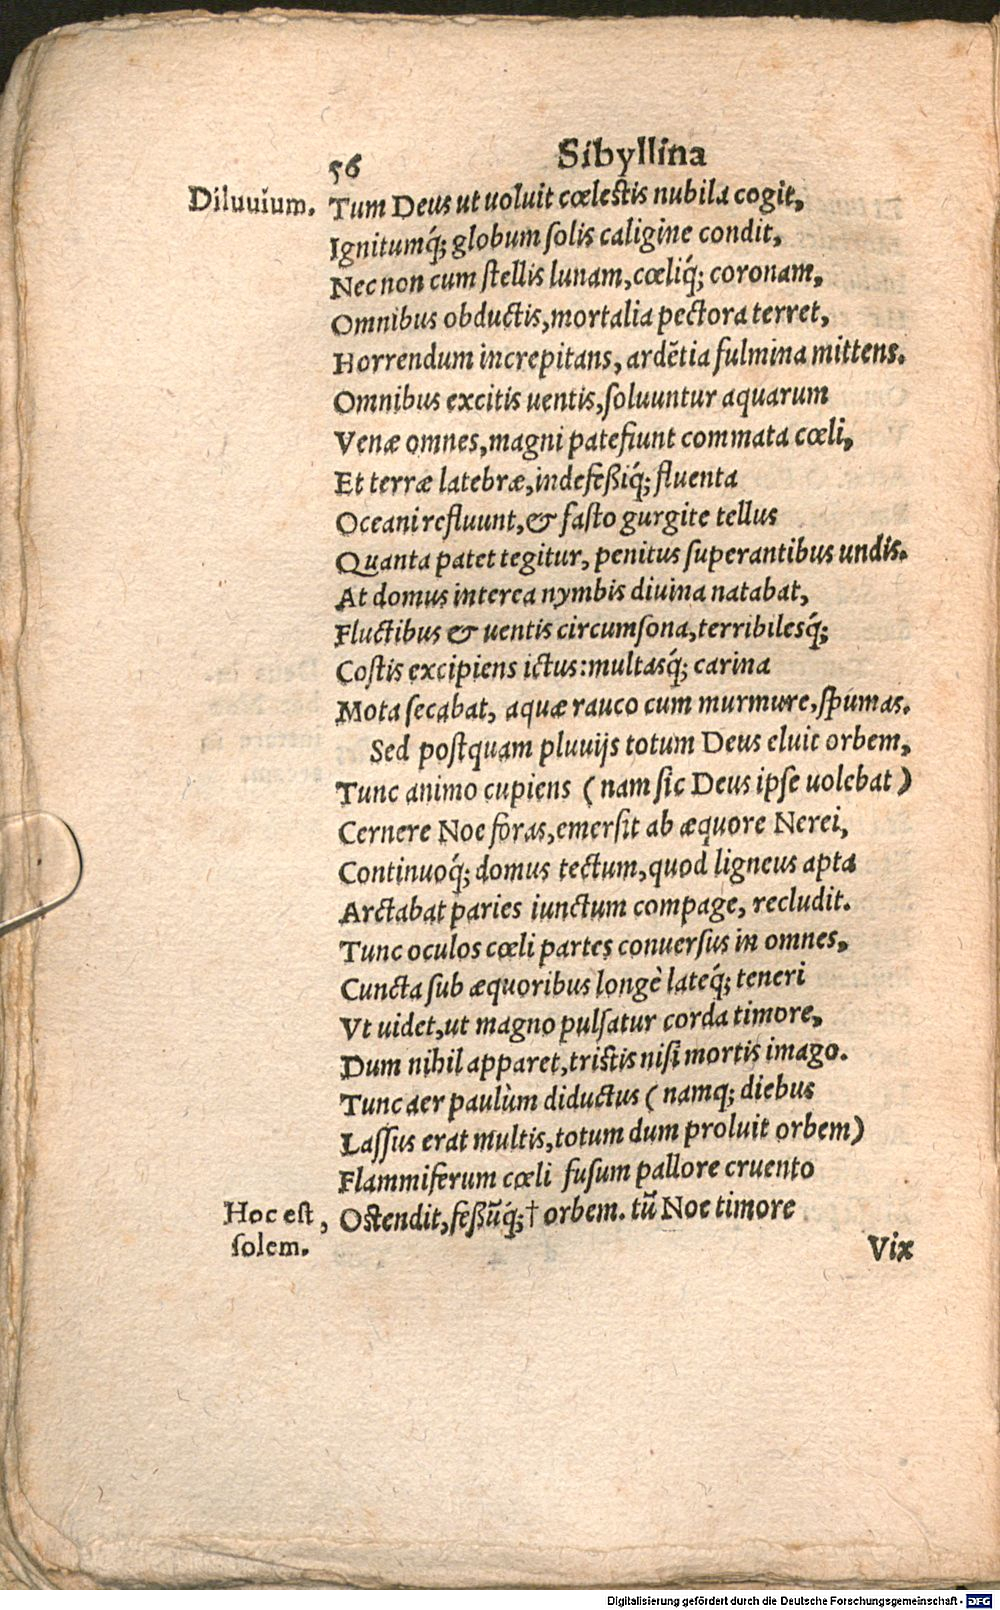 56 Sibyllina
Diluuium. Tum Deus ut uoluit cœlestis nubila cogit,
Ignitumq́; globum ſolis caligine condit,
Nec non cum ſtellis lunam, cœliq́; coronam,
Omnibus obductis, mortalia pectora terret,
Horrendum increpitans, ardẽtia fulmina mittens.
Omnibus excitis uentis, ſoluuntur aquarum
Venæ omnes, magni patefiunt commata cœli,
Et terræ latebræ, indefeßiq́; fluenta
Oceani refluunt, & faſto gurgite tellus
Quanta patet tegitur, penitus ſuperantibus undis.
At domus interea nymbis diuina natabat,
Fluctibus & uentis circumſona, terribilesq́;
Coſtis excipiens ictus: multasq́; carina
Mota ſecabat, aquæ rauco cum murmure, ſpumas.
Sed poſtquam pluuijs totum Deus eluit orbem,
Tunc animo cupiens (nam ſic Deus ipſe uolebat)
Cernere Noe foras, emerſit ab æquore Nerei,
Continuoq́; domus tectum, quod ligneus apta
Arctabat paries iunctum compage, recludit.
Tunc oculos cœli partes conuerſus in omnes,
Cuncta ſub æquoribus longè lateq́; teneri
Vt uidet, ut magno pulſatur corda timore,
Dum nihil apparet, triſtis niſi mortis imago.
Tunc aer paulùm diductus (namq; diebus
Laſſus erat multis, totum dum proluit orbem)
Flammiferum cœli fuſum pallore cruento
Hoc est, Oſtendit, feßũq́; † orbem. tũ Noe timore
ſolem.
Vix
Digitalisierung gefördert durch die Deutsche Forschungsgemeinschaft - DFG